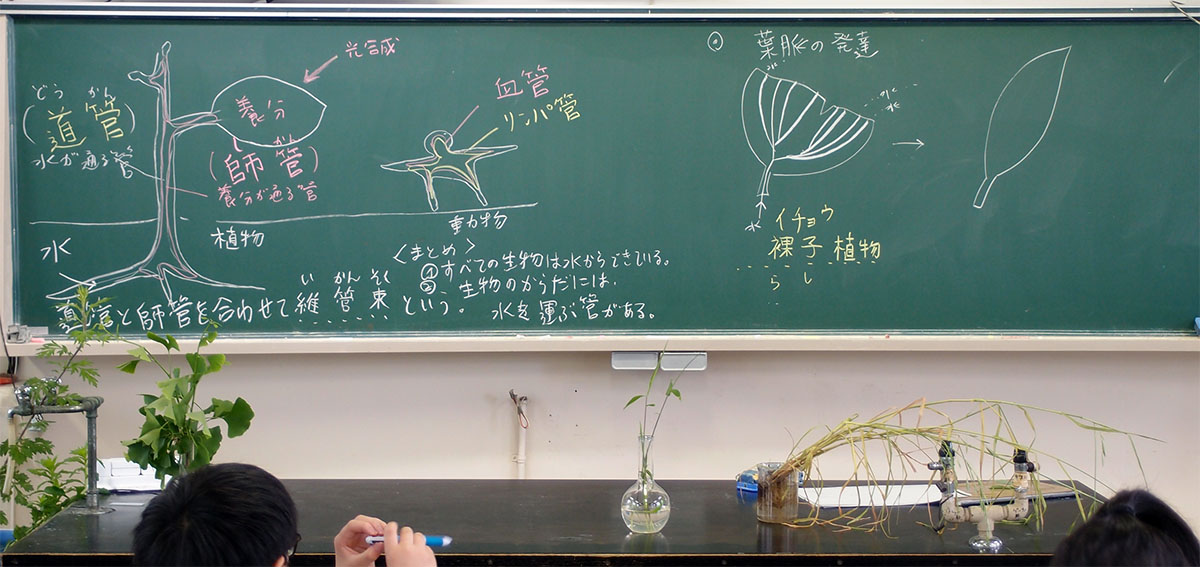 どう かん
(道管)
水が通る管
光合成
養分
かん
(師管)
養分が通る管
水
植物
血管
リンパ管
動物
<まとめ>
① すべての生物は水からできている。
② 生物のからだには、
水を運ぶ管がある。
い かん そく
道管と師管を合わせて維管束という。
葉脈の発達
水
水
水
水
イチョウ
裸子植物
らし